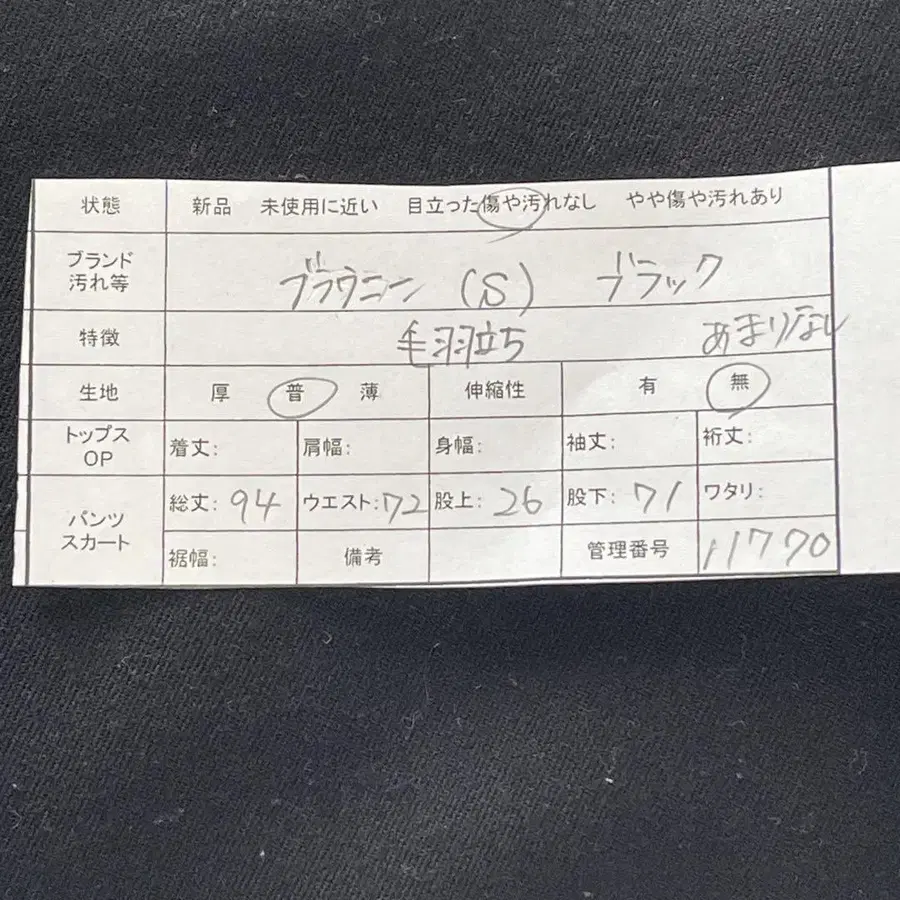 状態 新品 未使用に近い 目立った傷や汚れなし やや傷や汚れあり
ブランド
汚れ等 ブラウニー (S) ブラック
特徴 毛羽立ち あまりなし
生地 厚 普 薄 伸縮性 有 無
トップス
OP 着丈: 肩幅: 身幅: 袖丈: 裄丈:
パンツ
スカート 総丈: 94 ウエスト: 72 股上: 26 股下: 71 ワタリ:
裾幅: 備考 管理番号 11770